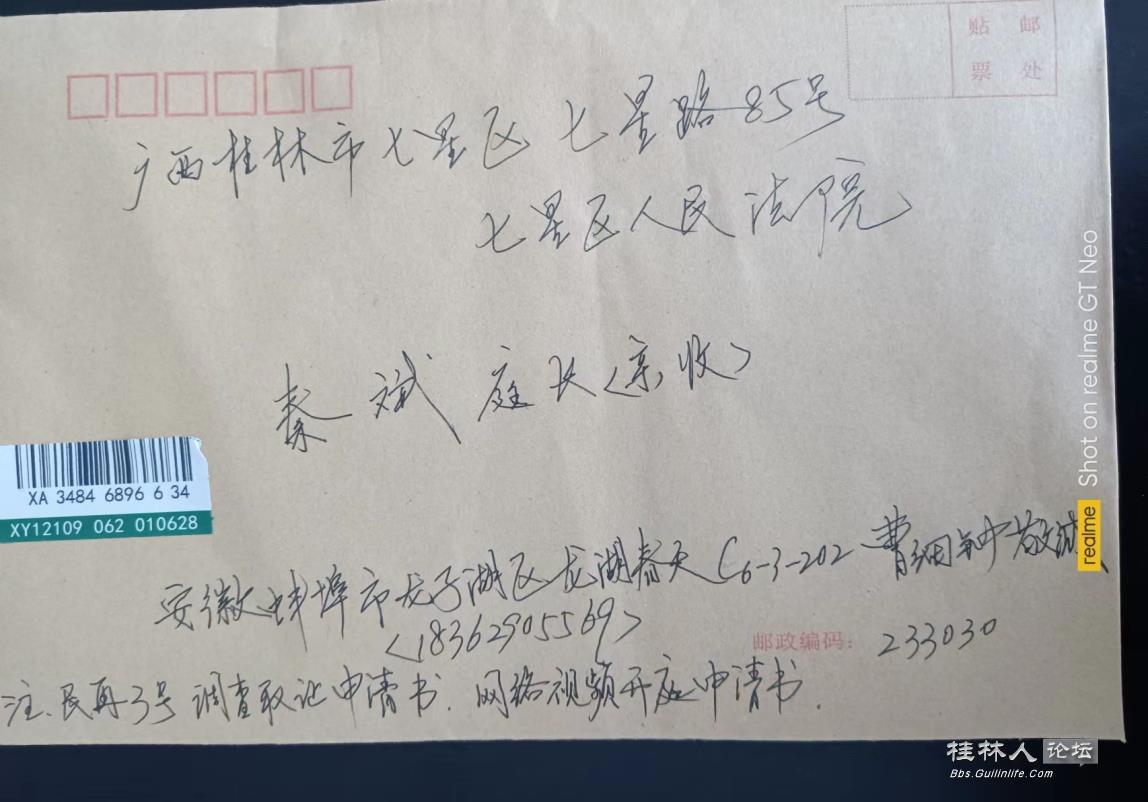 贴 邮
票 处
广西桂林市七星区七星路85号
七星区人民法院
秦斌庭长(亲收)
XA 3484 6896 6 34
XY12109 062 010628
安徽蚌埠市龙子湖区龙湖春天C6-3-202 曹细钟敬
<18362905569>
邮政编码: 233030
注、民再3号调查取证申请书、网络视频开庭申请书.
Shot on realme GT Neo
realme
桂林人论坛
Bbs.Guilinlife.Com